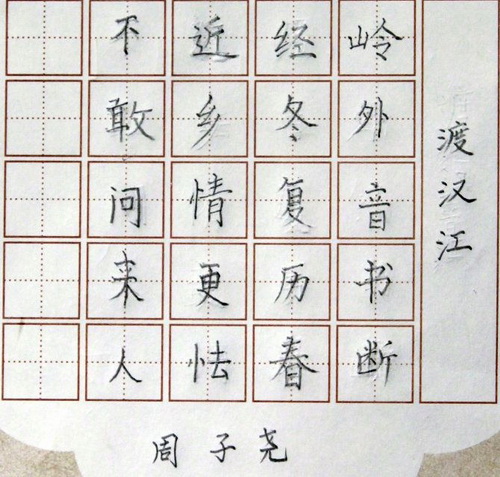 渡汉江
岭外音书断
经冬复历春
近乡情更怯
不敢问来人
周子尧